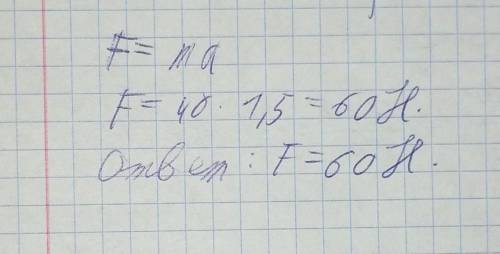 F = ma
F = 40 · 1,5 = 60 Н.
Ответ: F = 60 Н.